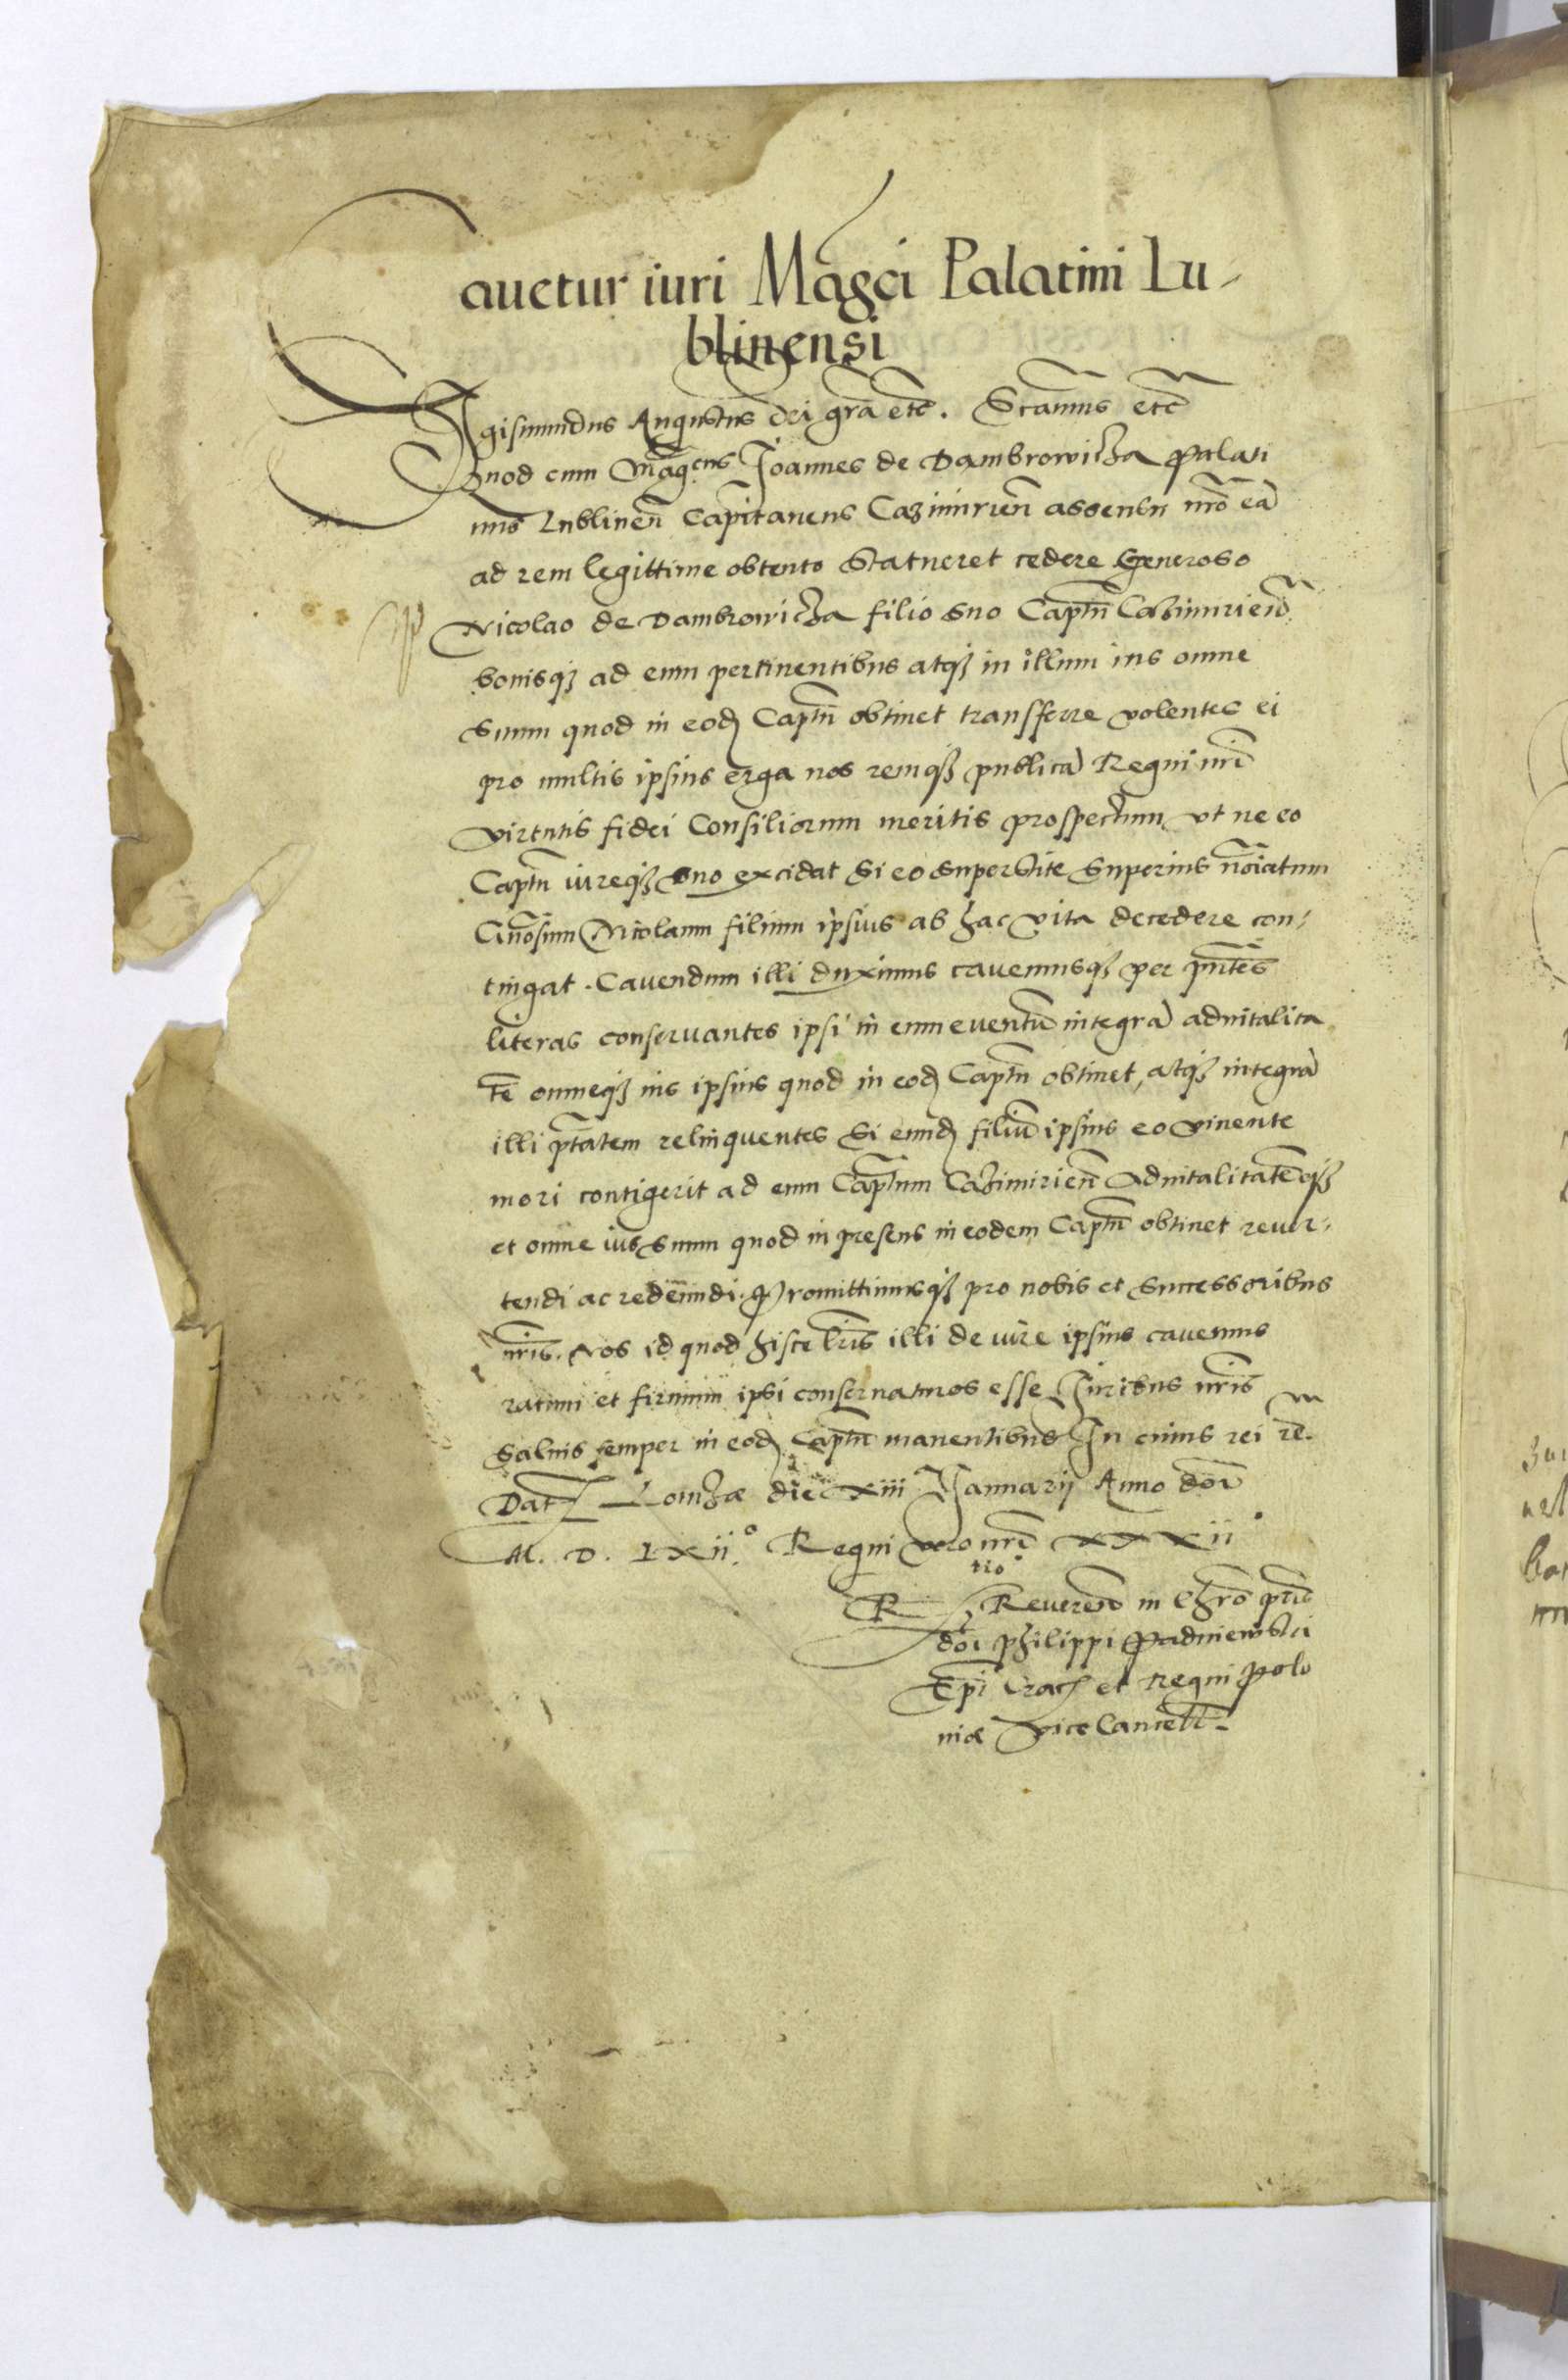 Cauetur iuri Magci Palatini Lu-
blinensi
Sigismundus Augustus dei gra etc. Scimus etc
Quod cum Magcus Joannes de Dambrowicza Palati
nus Lublinen Capitaneus Cazimirien assensu nro ea
ad rem legittime obtento Statueret cedere Generoso
Nicolao de Dambrowicza filio suo Captu Cazimirien
bonisqз ad eum pertinentibus atqз in illum ius omne
suum quod in eod Captu obtinet transferre volentes ei
pro multis ipsius erga nos remqз publica Regni nri
virtutis fidei Consiliorum meritis prospectum vt ne eo
Captu iureqз suo excidat si eo superstite superius noiatum
Gnosum Nicolaum filium ipsius ab hac vita decedere con-
tingat. Cauendum illi duximus cauemusqз per pntes
literas conseruantes ipsi in eum euentu integra aduitalita
te omneqз ius ipsius quod in eod Captu obtinet, atqз integra
illi ptatem relinquentes si eund filiu ipsius eo viuente
mori contigerit ad eum Captum Cazimirien Aduitalitateqз
et omne ius suum quod in presens in eodem Captu obtinet reuer-
tendi ac redeundi. Promittimusqз pro nobis et Successoribus
nris. Nos id quod hisce lris illi de iure ipsius cauemus
ratum et firmum ipsi conseruaturos esse Juribus nris
saluis semper in eod Captu manentibus In cuius rei
Dat Lomzæ die xiii Januarij Anno doi
M. D. LXii.° Regni vero nri xxxii°
R Reuerend in Chro pris
doi philippi Padniewski
Epi Crac et Regni Polo
niæ vice Cancell-